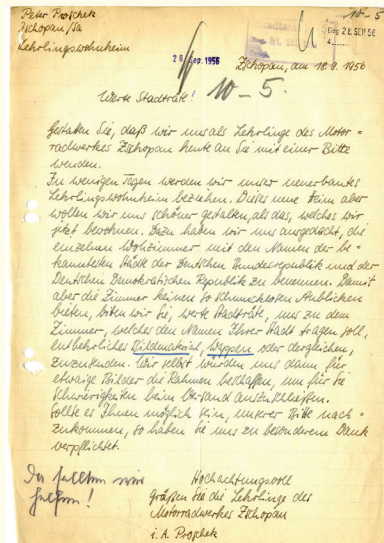 Peter Proschek
Zschopau/Sa
Lehrlingswohnheim
10-5
28. Sep. 1956
Stadtamt
Eing 28. SEP. 56
Zschopau, am 18.9.1956
Werte Stadträte!
10-5.
Gestatten Sie, daß wir uns als Lehrlinge des Motor-
radwerkes Zschopau heute an Sie mit einer Bitte
wenden.
In wenigen Tagen werden wir unser neuerbautes
Lehrlingswohnheim beziehen. Dieses neue Heim aber
wollen wir uns schöner gestalten, als das, welches wir
jetzt bewohnen. Dazu haben wir uns ausgedacht, die
einzelnen Wohnzimmer mit den Namen der be-
kanntesten Städte der Deutschen Bundesrepublik und der
Deutschen Demokratischen Republik zu benennen. Damit
aber die Zimmer keinen so schmucklosen Anblicken
bieten, bitten wir Sie, werte Stadträte, uns zu dem
Zimmer, welches den Namen Ihrer Stadt tragen soll,
entbehrliches Bildmaterial, Wappen oder dergleichen,
zuzusenden. Wir selbst würden uns dann für
etwaige Bilder die Rahmen beschaffen, um für Sie
Schwierigkeiten beim Versand auszuschließen.
Sollte es Ihnen möglich sein, unserer Bitte nach-
zukommen, so haben Sie uns zu besonderem Dank
verpflichtet.
Da sollten wir
helfen!
Hochachtungsvoll
grüßen Sie die Lehrlinge des
Motorradwerkes Zschopau
i. A. Proschek